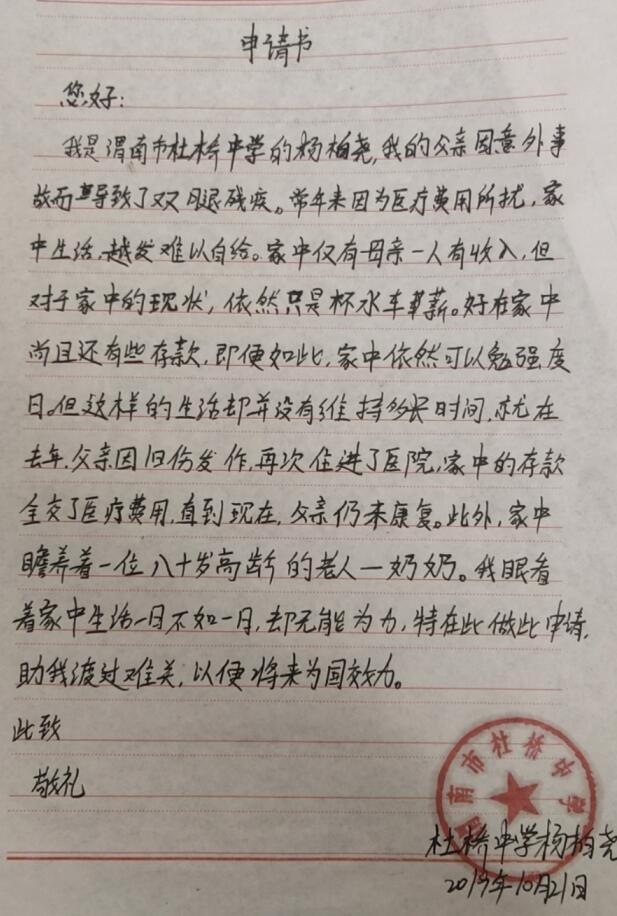 申请书
您好:
我是渭南市杜桥中学的杨柏尧,我的父亲因意外事
故而导致了双腿残疾。常年来因为医疗费用所扰,家
中生活,越发难以自给。家中仅有母亲一人有收入,但
对于家中的现状,依然只是杯水车薪。好在家中
尚且还有些存款,即便如此,家中依然可以勉强度
日。但这样的生活却并没有维持多长时间,就在
去年,父亲因旧伤发作,再次住进了医院,家中的存款
全交了医疗费用,直到现在,父亲仍未康复。此外,家中
赡养着一位八十岁高龄的老人一奶奶。我眼看
着家中生活一日不如一日,却无能为力,特在此做此申请,
助我渡过难关,以便将来为国效力。
此致
敬礼
渭南市杜桥中学
杜桥中学杨柏尧
2019年10月21日